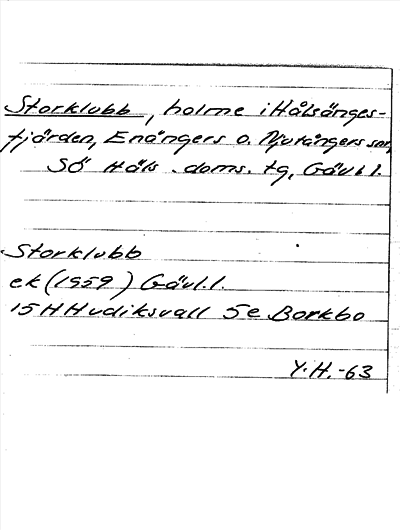 Storklubb, holme i Hålsänges-
fjärden, Enångers o. Njutångers snr,
SÖ Häls. doms. tg, Gävl. l.
Storklubb
ek (1959) Gävl. l.
15H Hudiksvall 5e Borkbo
Y.H.-63